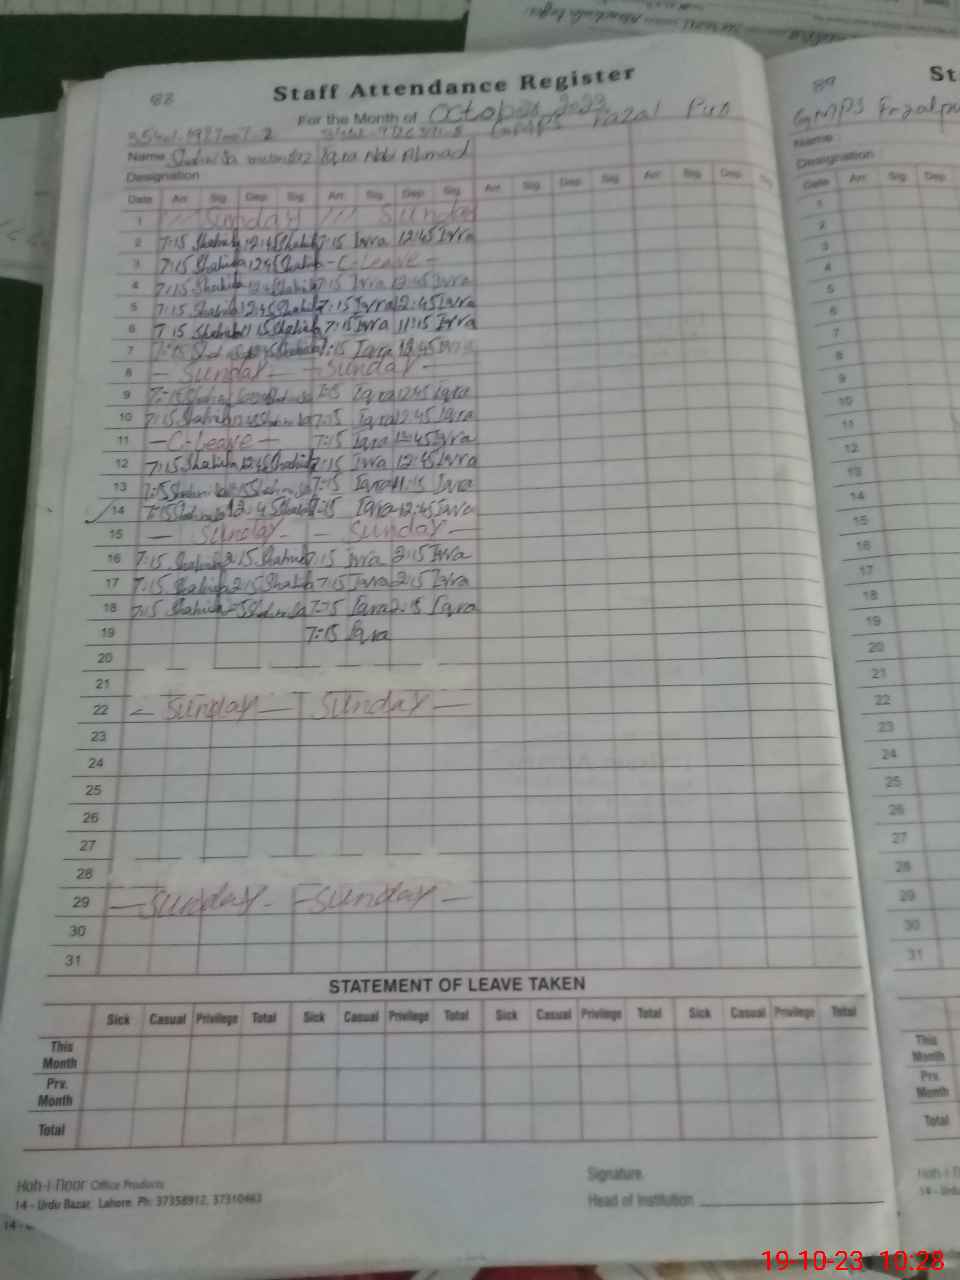 88
Staff Attendance Register
For the Month of October 2023
GMPS Fazal Pur
Name Iqra Nabi Ahmad
Designation
Date Arr Sig Dep Sig Arr Sig Dep Sig Arr Sig Dep Sig Arr Sig Dep Sig
1 Sunday Sunday
2 7:15 Shahida 12:45 Shahida 7:15 Iqra 12:45 Iqra
3 7:15 Shahida 12:45 Shahida - C-Leave -
4 7:15 Shahida 12:45 Shahida 7:15 Iqra 12:45 Iqra
5 7:15 Shahida 12:45 Shahida 7:15 Iqra 12:45 Iqra
6 7:15 Shahida 11:15 Shahida 7:15 Iqra 11:15 Iqra
7 7:15 Shahida 12:45 Shahida 7:15 Iqra 12:45 Iqra
8 - Sunday - - Sunday -
9 7:15 Shahida 7:15 Iqra 12:45 Iqra
10 7:15 Shahida 7:15 Iqra 12:45 Iqra
11 - C-Leave - 7:15 Iqra 12:45 Iqra
12 7:15 Shahida 12:45 Shahida 7:15 Iqra 12:45 Iqra
13 7:15 Shahida 7:15 Iqra 11:15 Iqra
14 7:15 Shahida 12:45 Shahida 7:15 Iqra 12:45 Iqra
15 - Sunday - - Sunday -
16 7:15 Shahida 2:15 Shahida 7:15 Iqra 2:15 Iqra
17 7:15 Shahida 2:15 Shahida 7:15 Iqra 2:15 Iqra
18 7:15 Shahida 2:15 Shahida 7:15 Iqra 2:15 Iqra
19 7:15 Iqra
20
21
22 - Sunday - Sunday -
23
24
25
26
27
28
29 - Sunday - - Sunday -
30
31
STATEMENT OF LEAVE TAKEN
Sick Casual Privilege Total Sick Casual Privilege Total Sick Casual Privilege Total Sick Casual Privilege Total
This Month
Prv. Month
Total
Signature
Head of Institution
Hoh-i-Noor Office Products
14 - Urdu Bazar, Lahore. Ph: 37358912, 37310463
89
St
GMPS Fazalpu
Name
Designation
Date Arr Sig Dep
1
2
3
4
5
6
7
8
9
10
11
12
13
14
15
16
17
18
19
20
21
22
23
24
25
26
27
28
29
30
31
This Month
Prv. Month
Total
19-10-23 10:28